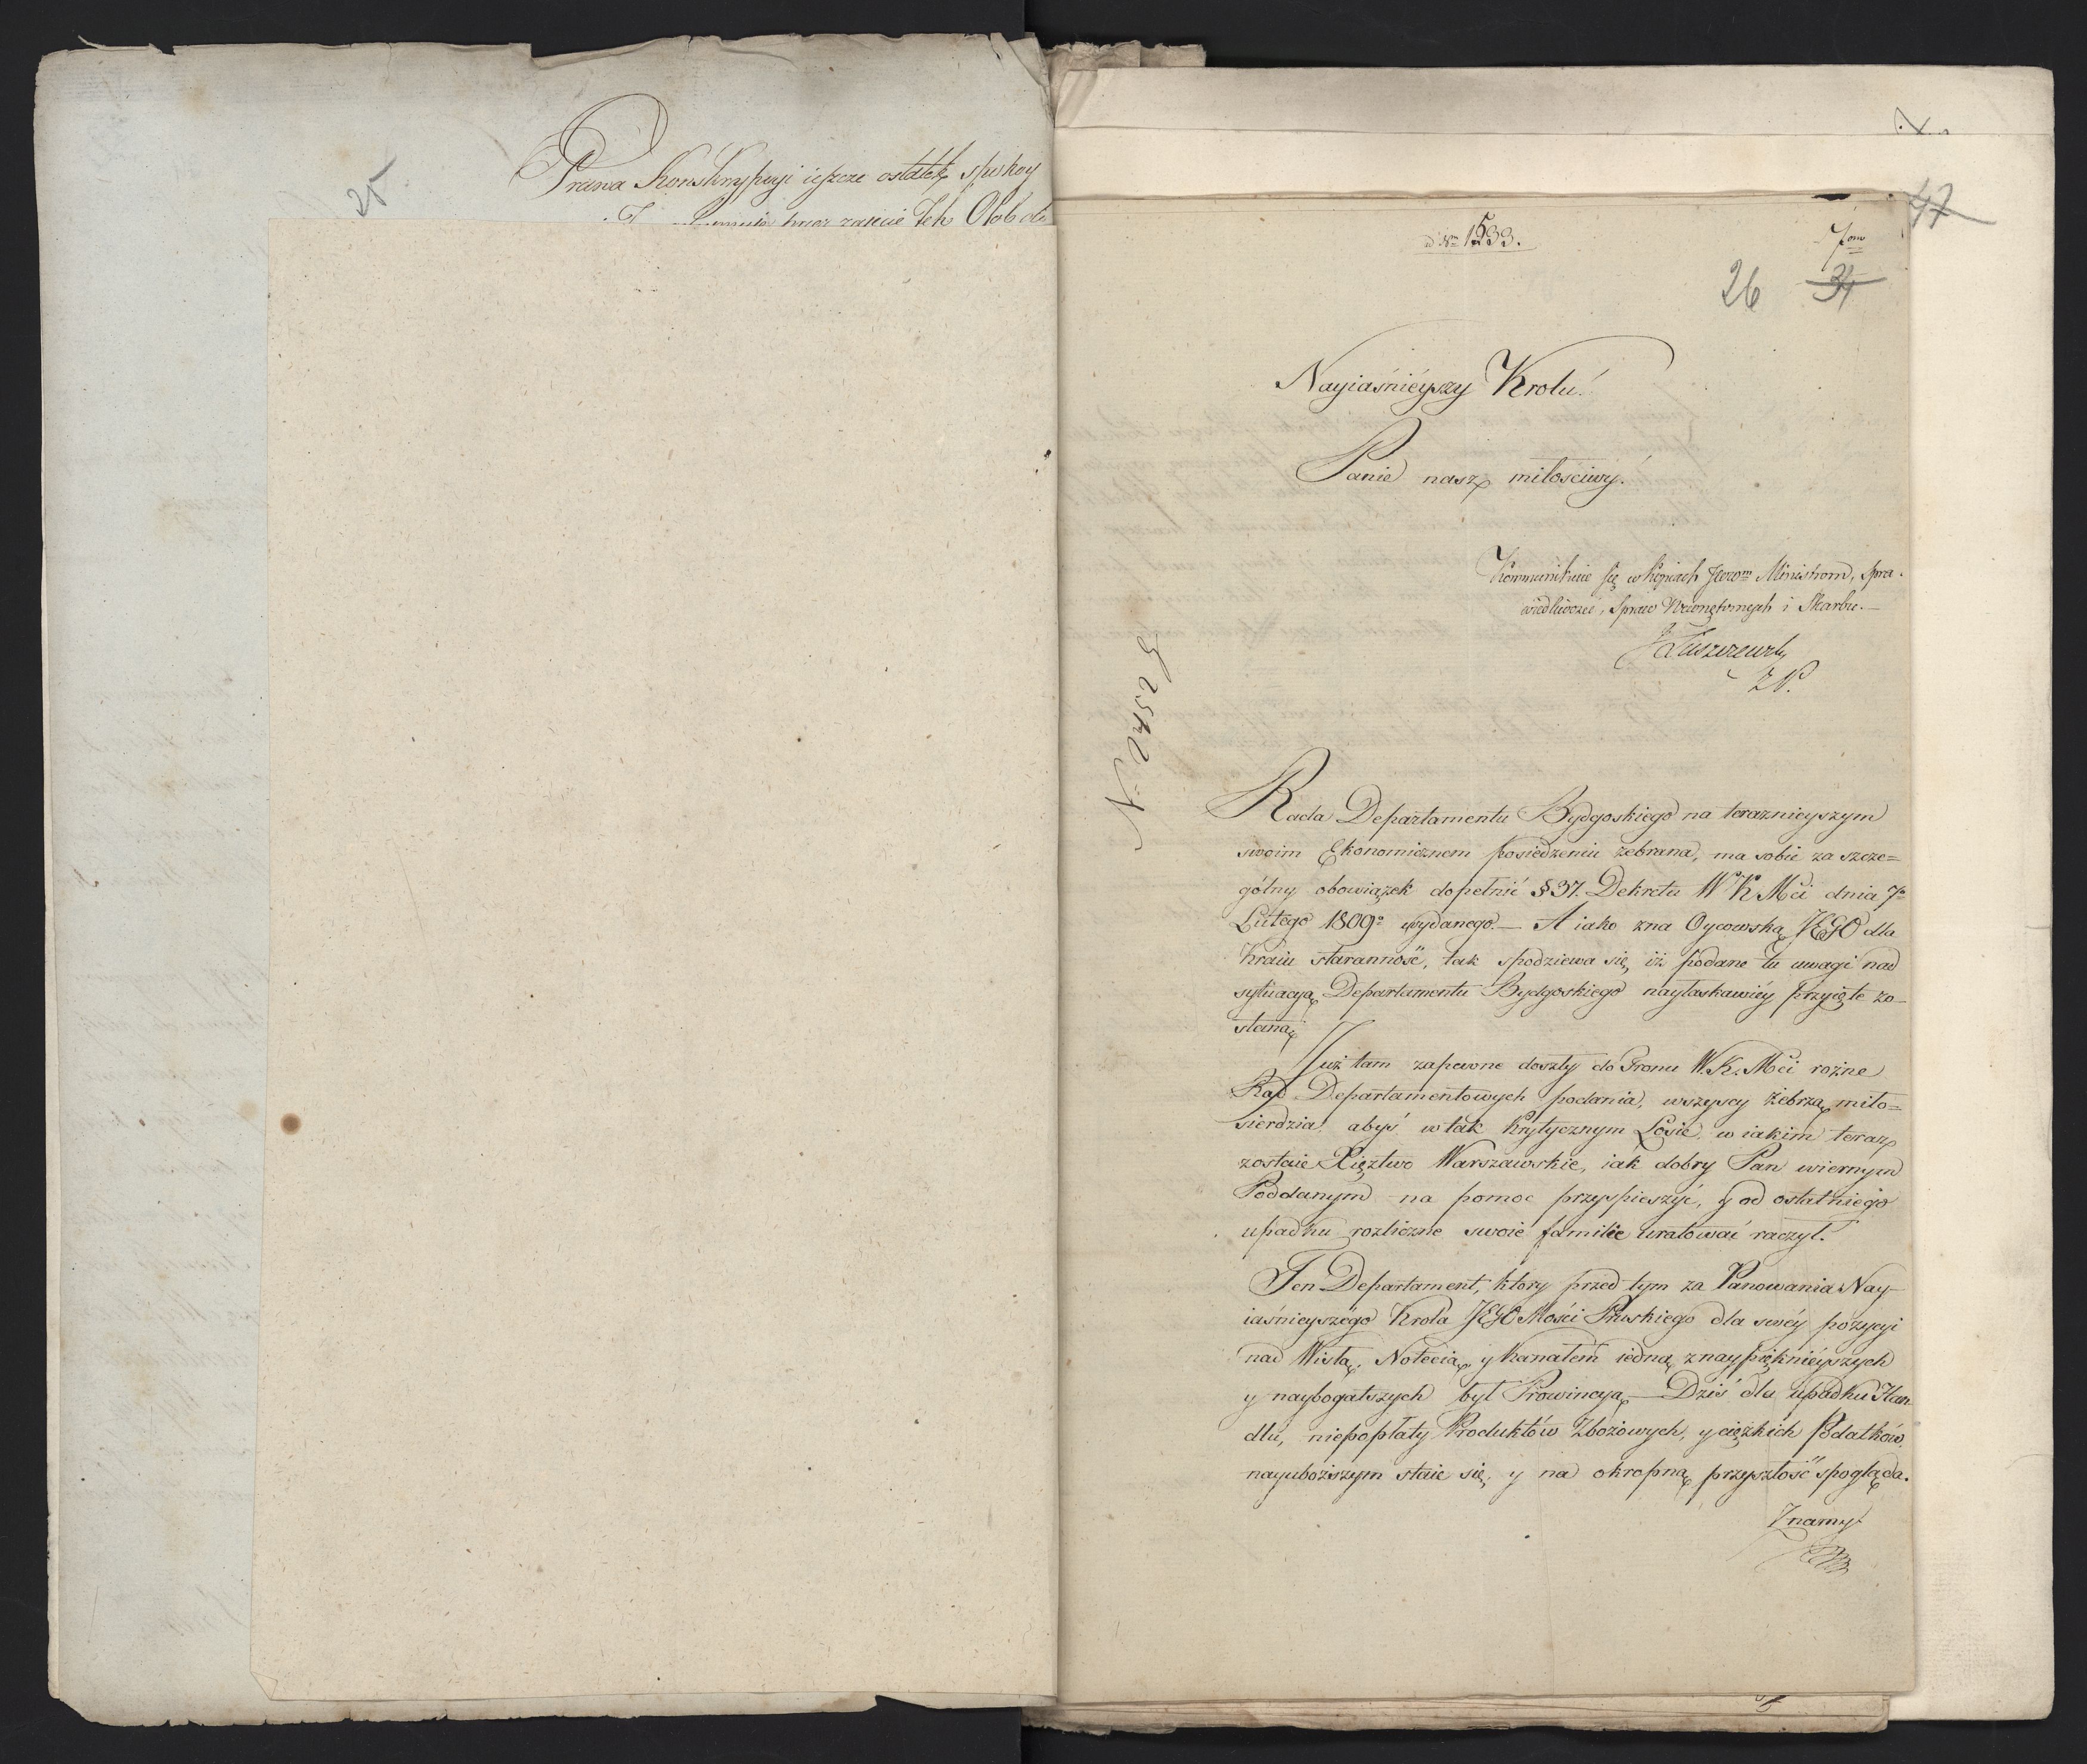 25
Prawa Konskrypcyi ieszcze ostatek spokoy
tych Osob do
47
ad Nrm 1533.
26 34
Nayiaśnieyszy Krolu!
Panie nasz miłosciwy!
Kommunikuie się w kopiach JWom Ministrom, Spra-
wiedliwości, Spraw Wewnętrznych i Skarbu.—
N. 2452
Rada Departamentu Bydgoskiego na teraznieyszym
swoim Ekonomicznem posiedzeniu zebrana, ma sobie za szcze=
gólny obowiązek dopełnić § 37. Dekretu W K Mci dnia 7º
Lutego 1809º wydanego.— A iako zna Oycowską JEGO dla
Kraiu staranność, tak spodziewa się, iż podane tu uwagi nad
sytuacyą Departamentu Bydgoskiego nayłaskawiéy przyięte zo-
staną.
Już tam zapewne doszły do Tronu W. K. Mci rożne
Rad Departamentowych podania, wszyscy żebrzą miło=
sierdzia, abyś w tak krytycznym Losie, w iakim teraz
zostaie Xięztwo Warszawskie, iak dobry Pan wiernym
Poddanym na pomoc przyspieszyć, y od ostatniego
upadku rozliczne swoie familie uratować raczył.
Ten Departament, ktory przed tym za Panowania Nay-
iaśnieyszégo Krola JEGO Mości Pruskiego dla swéy pozycyi
nad Wisłą, Notecią, y Kanałem iedną z naypięknieyszych
y naybogatszych był Prowincyą.— Dziś dla upadku Han-
dlu, niepopłaty Produktów Zbożowych, y cięzkich Podatków,
nayuboższym staie się, y na okropną przyszłość spogląda.
Znamy